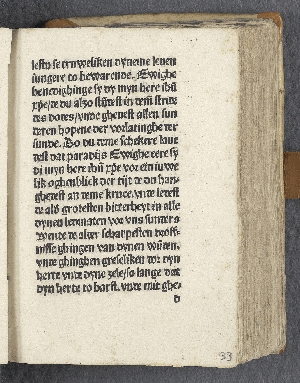 lestu se truweliken dyneme leuen
iungere to bewarende. Ewighe
benedighinge sy dy myn here ihũ
xp̃e/ de du also stũrest in dem stride
des dodes/ vnde gheuest allen sun
deren hopene der vorlatinghe der
sunde. Do du deme schekere laue
dest dat paradijs Ewighe eere sy
di myn here ihũ xp̃e vor ein iuwe
lik oghenblick der tijt de du han-
ghedest an deme kruce. vnde ledest
de aldergrotesten bitterheyt in alle
dynen ledematen vor vns sunders
Wente de alder scharpesten
ghingen van dynen
vnde ghinghen greseliken dor dyn
herte vnde dyne zele/ so lange dat
dyn herte to barst. vnde mit ghe-
d
33